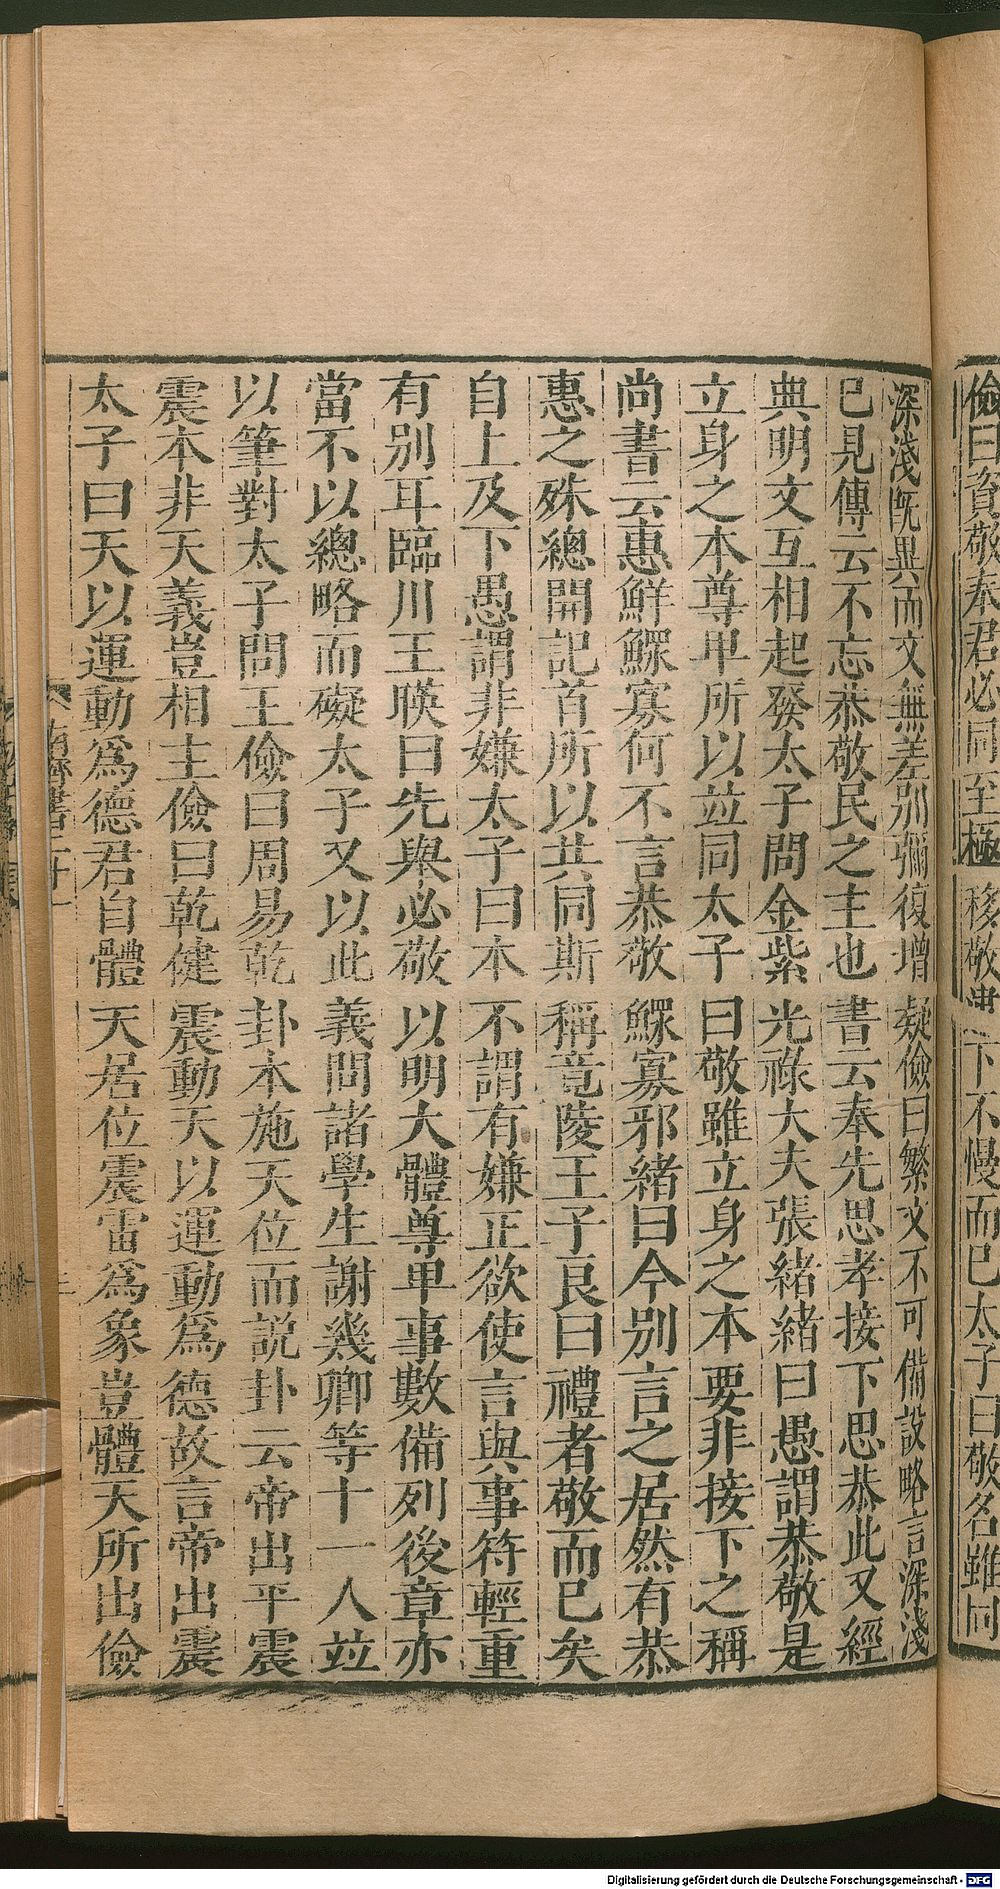 儉曰資敬奉君必同至極移敬逮下不慢而已太子曰敬名雖同
深淺旣異而文無差別彌復增疑儉曰繁文不可備設略言深淺
已見傳云不忘恭敬民之主也書云奉先思孝接下思恭此又經
典明文互相起發太子問金紫光祿大夫張緒緒曰愚謂恭敬是
立身之本尊卑所以竝同太子曰敬雖立身之本要非接下之稱
尚書云惠鮮鰥寡何不言恭敬鰥寡邪緒曰今別言之居然有恭
惠之殊總開記首所以共同斯稱竟陵王子良曰禮者敬而已矣
自上及下愚謂非嫌太子曰本不謂有嫌正欲使言與事符輕重
有别耳臨川王暎曰先舉必敬以明大體尊卑事數備列後章亦
當不以總略而礙太子又以此義問諸學生謝幾卿等十一人竝
以筆對太子問王儉曰周易乾卦本施天位而説卦云帝出乎震
震本非天義豈相主儉曰乾健震動天以運動爲德故言帝出震
太子曰天以運動爲德君自體天居位震雷爲象豈體天所出儉
南齊書二十一
Digitalisierung gefördert durch die Deutsche Forschungsgemeinschaft - DFG